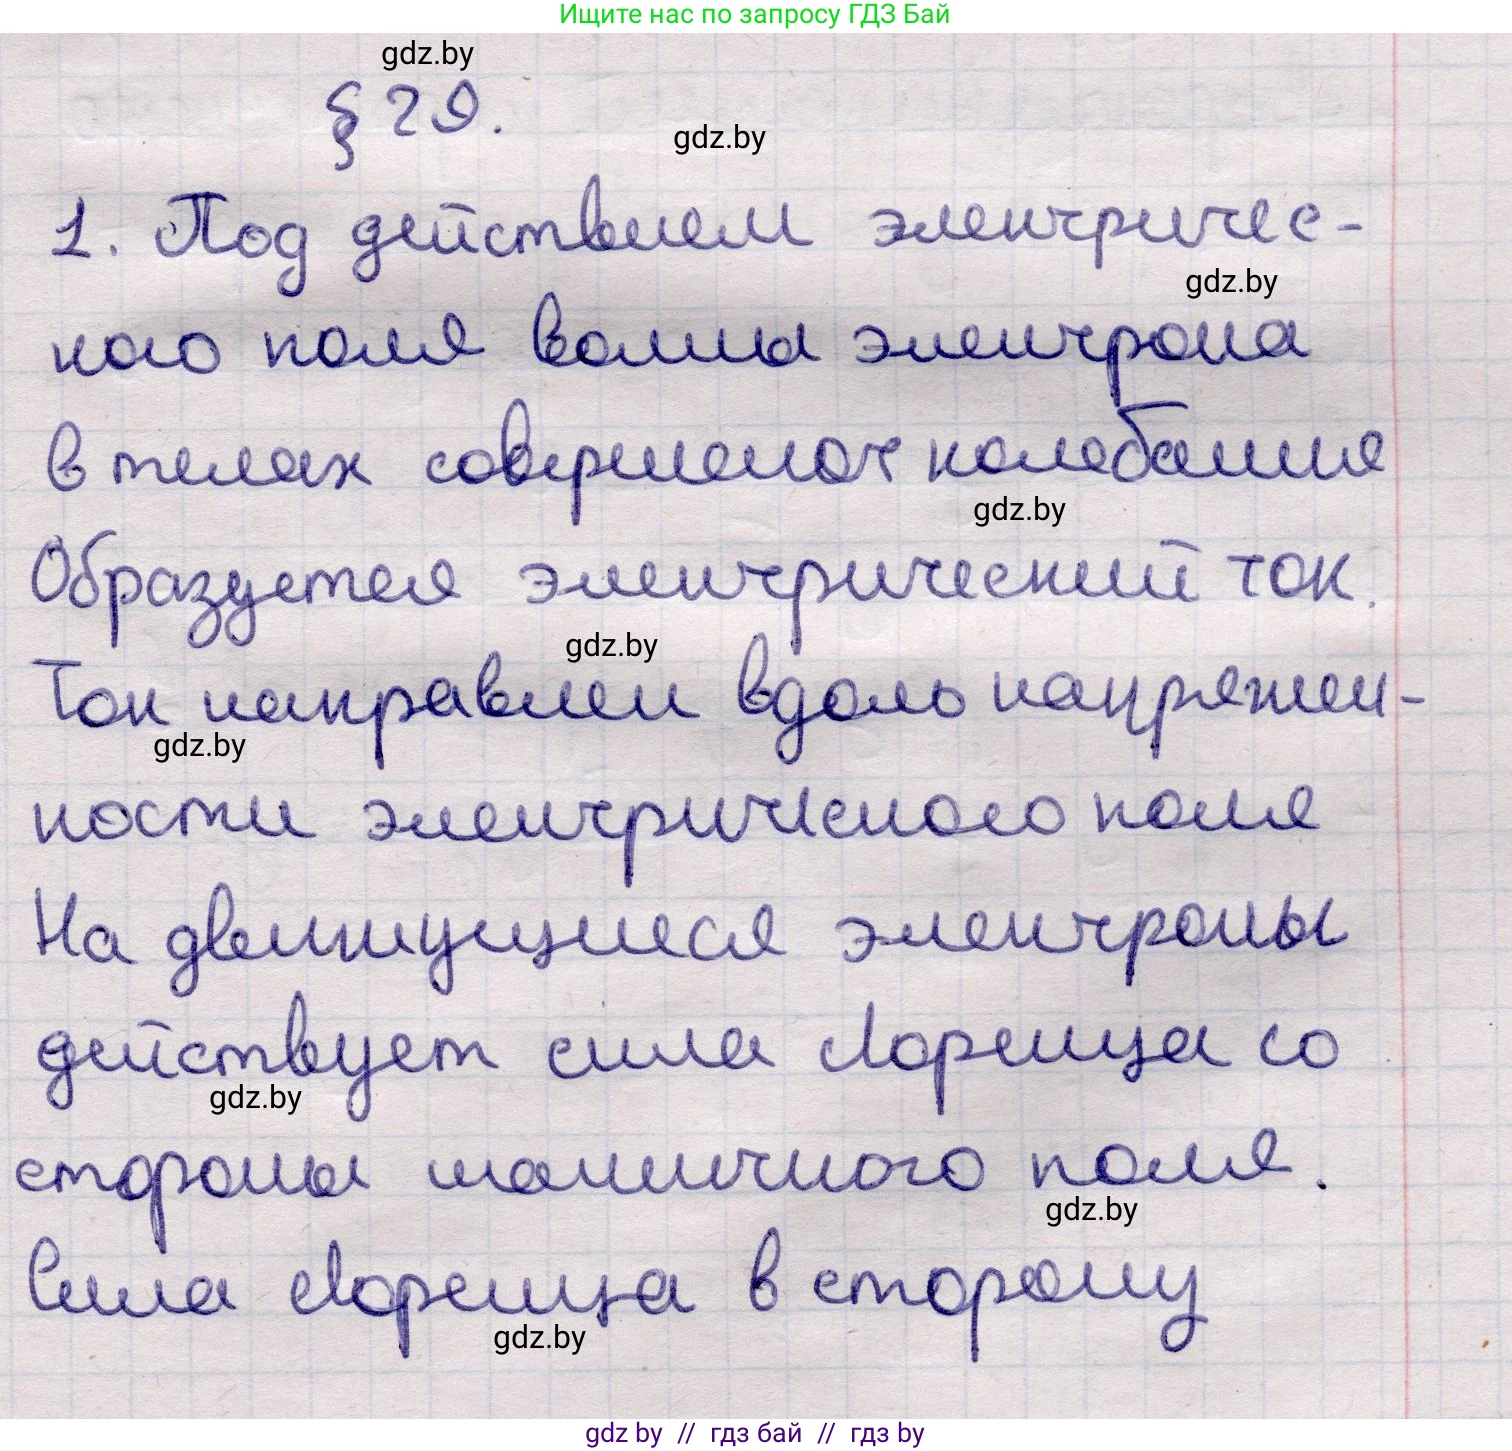 Ищите нас по запросу ГДЗ Бай
gdz.by
§ 29.
gdz.by
1. Под действием электричес-
gdz.by
кого поля волны электрона
в телах совершают колебания
gdz.by
Образуется электрический ток.
gdz.by
Ток направлен вдоль напряжен-
gdz.by
ности электрического поля
На движущиеся электроны
действует сила Лоренца со
gdz.by
стороны магнитного поля.
gdz.by
Сила Лоренца в сторону
gdz.by
gdz by // гдз бай // гдз by